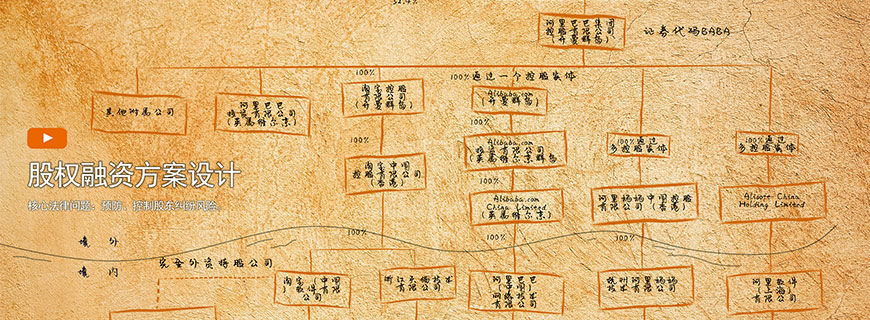 阿里巴巴集团
控股有限公司
(开曼群岛)
证券代码BABA
100%
100%通过一个控股实体
其他附属公司
阿里巴巴
投资有限公司
(英属维尔京)
淘宝控股
有限公司
(开曼群岛)
Alibaba.com
(开曼群岛)
100%
100%
100%通过
多控股实体
100%通过
多控股实体
股权融资方案设计
核心法律问题、预防、控制股东纠纷风险。
淘宝中国
控股有限公司
(香港)
Alibaba.com
投资有限公司
(英属维尔京群岛)
100%
Alibaba.com
China Limited
(英属维尔京)
阿里妈妈中国控股
有限公司
(香港)
Alisoft China
Holding Limited
境 外
100%
100%
100%
100%
境 内
完全外资持股公司
淘宝(中国
)软件有限
公司
浙江天猫技术
有限公司
阿里巴巴
(中国)
网络技术
有限公司
杭州阿里妈妈
技术有限公司
阿里软件
(上海)
有限公司